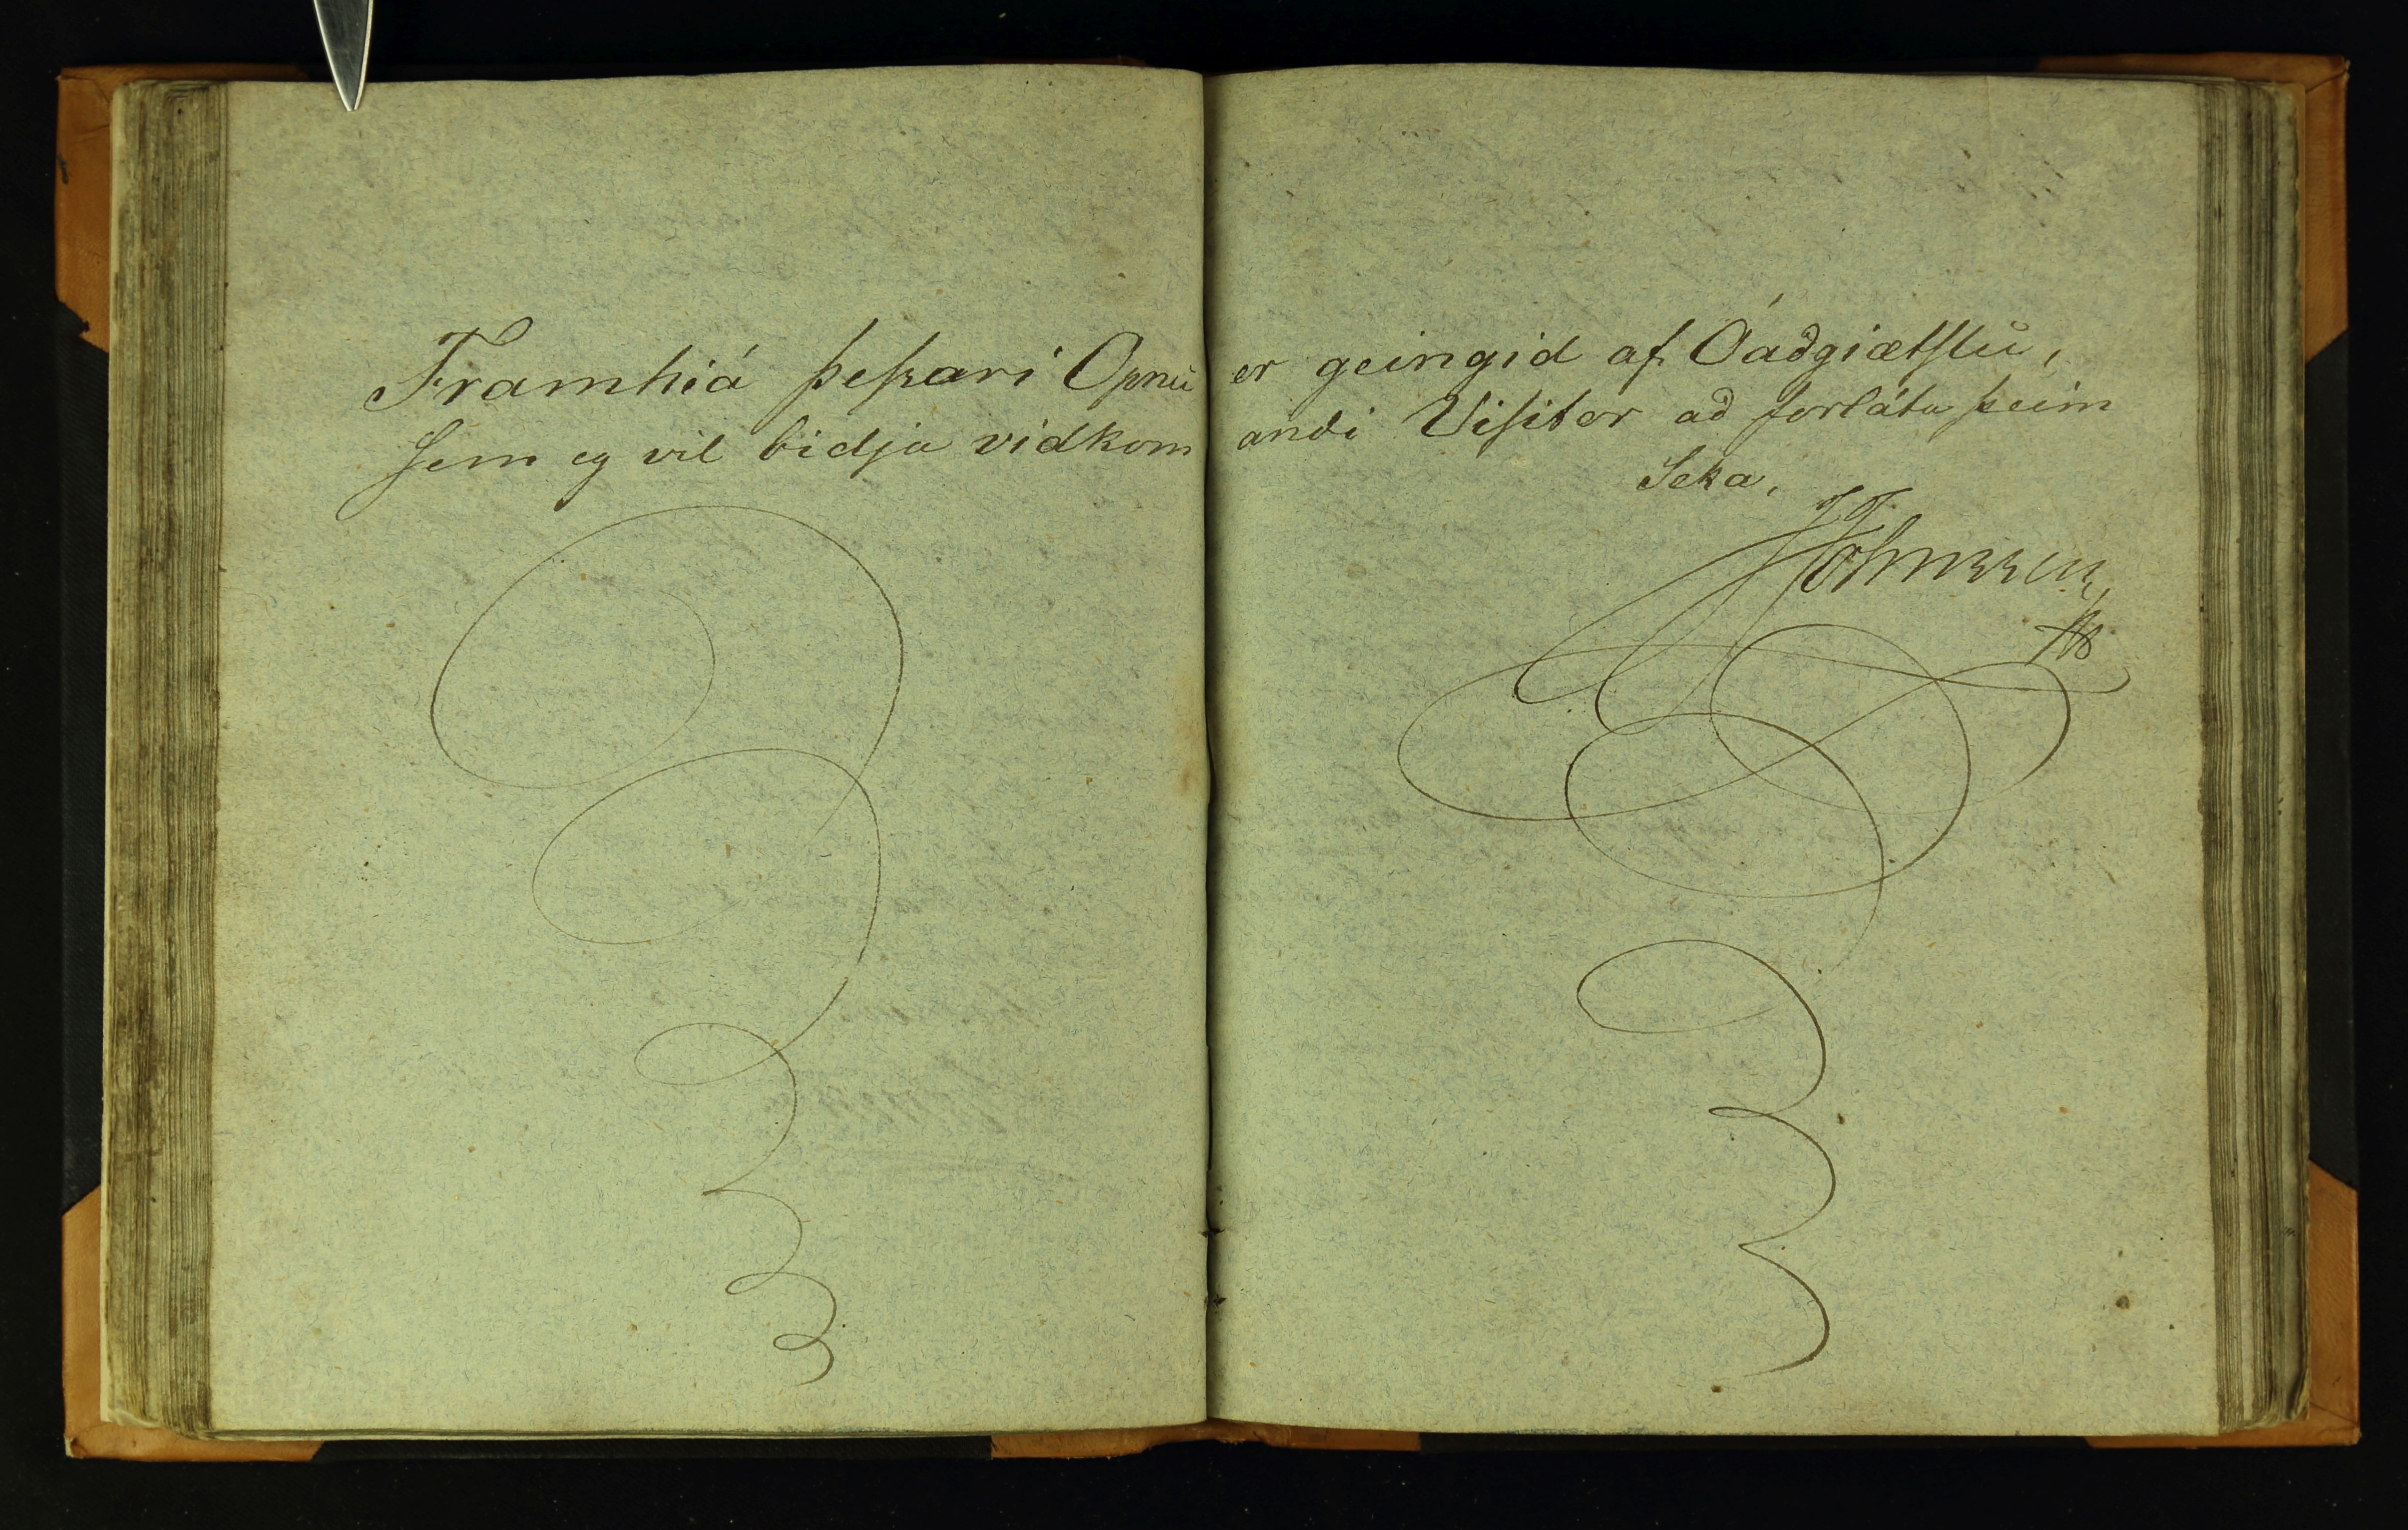 Framhiá þeßari Opnu er geingid af Óaðgiætslu,
sem eg vil bidja vidkomandi Visitor að forláta þeim
Seka,
Johnssen